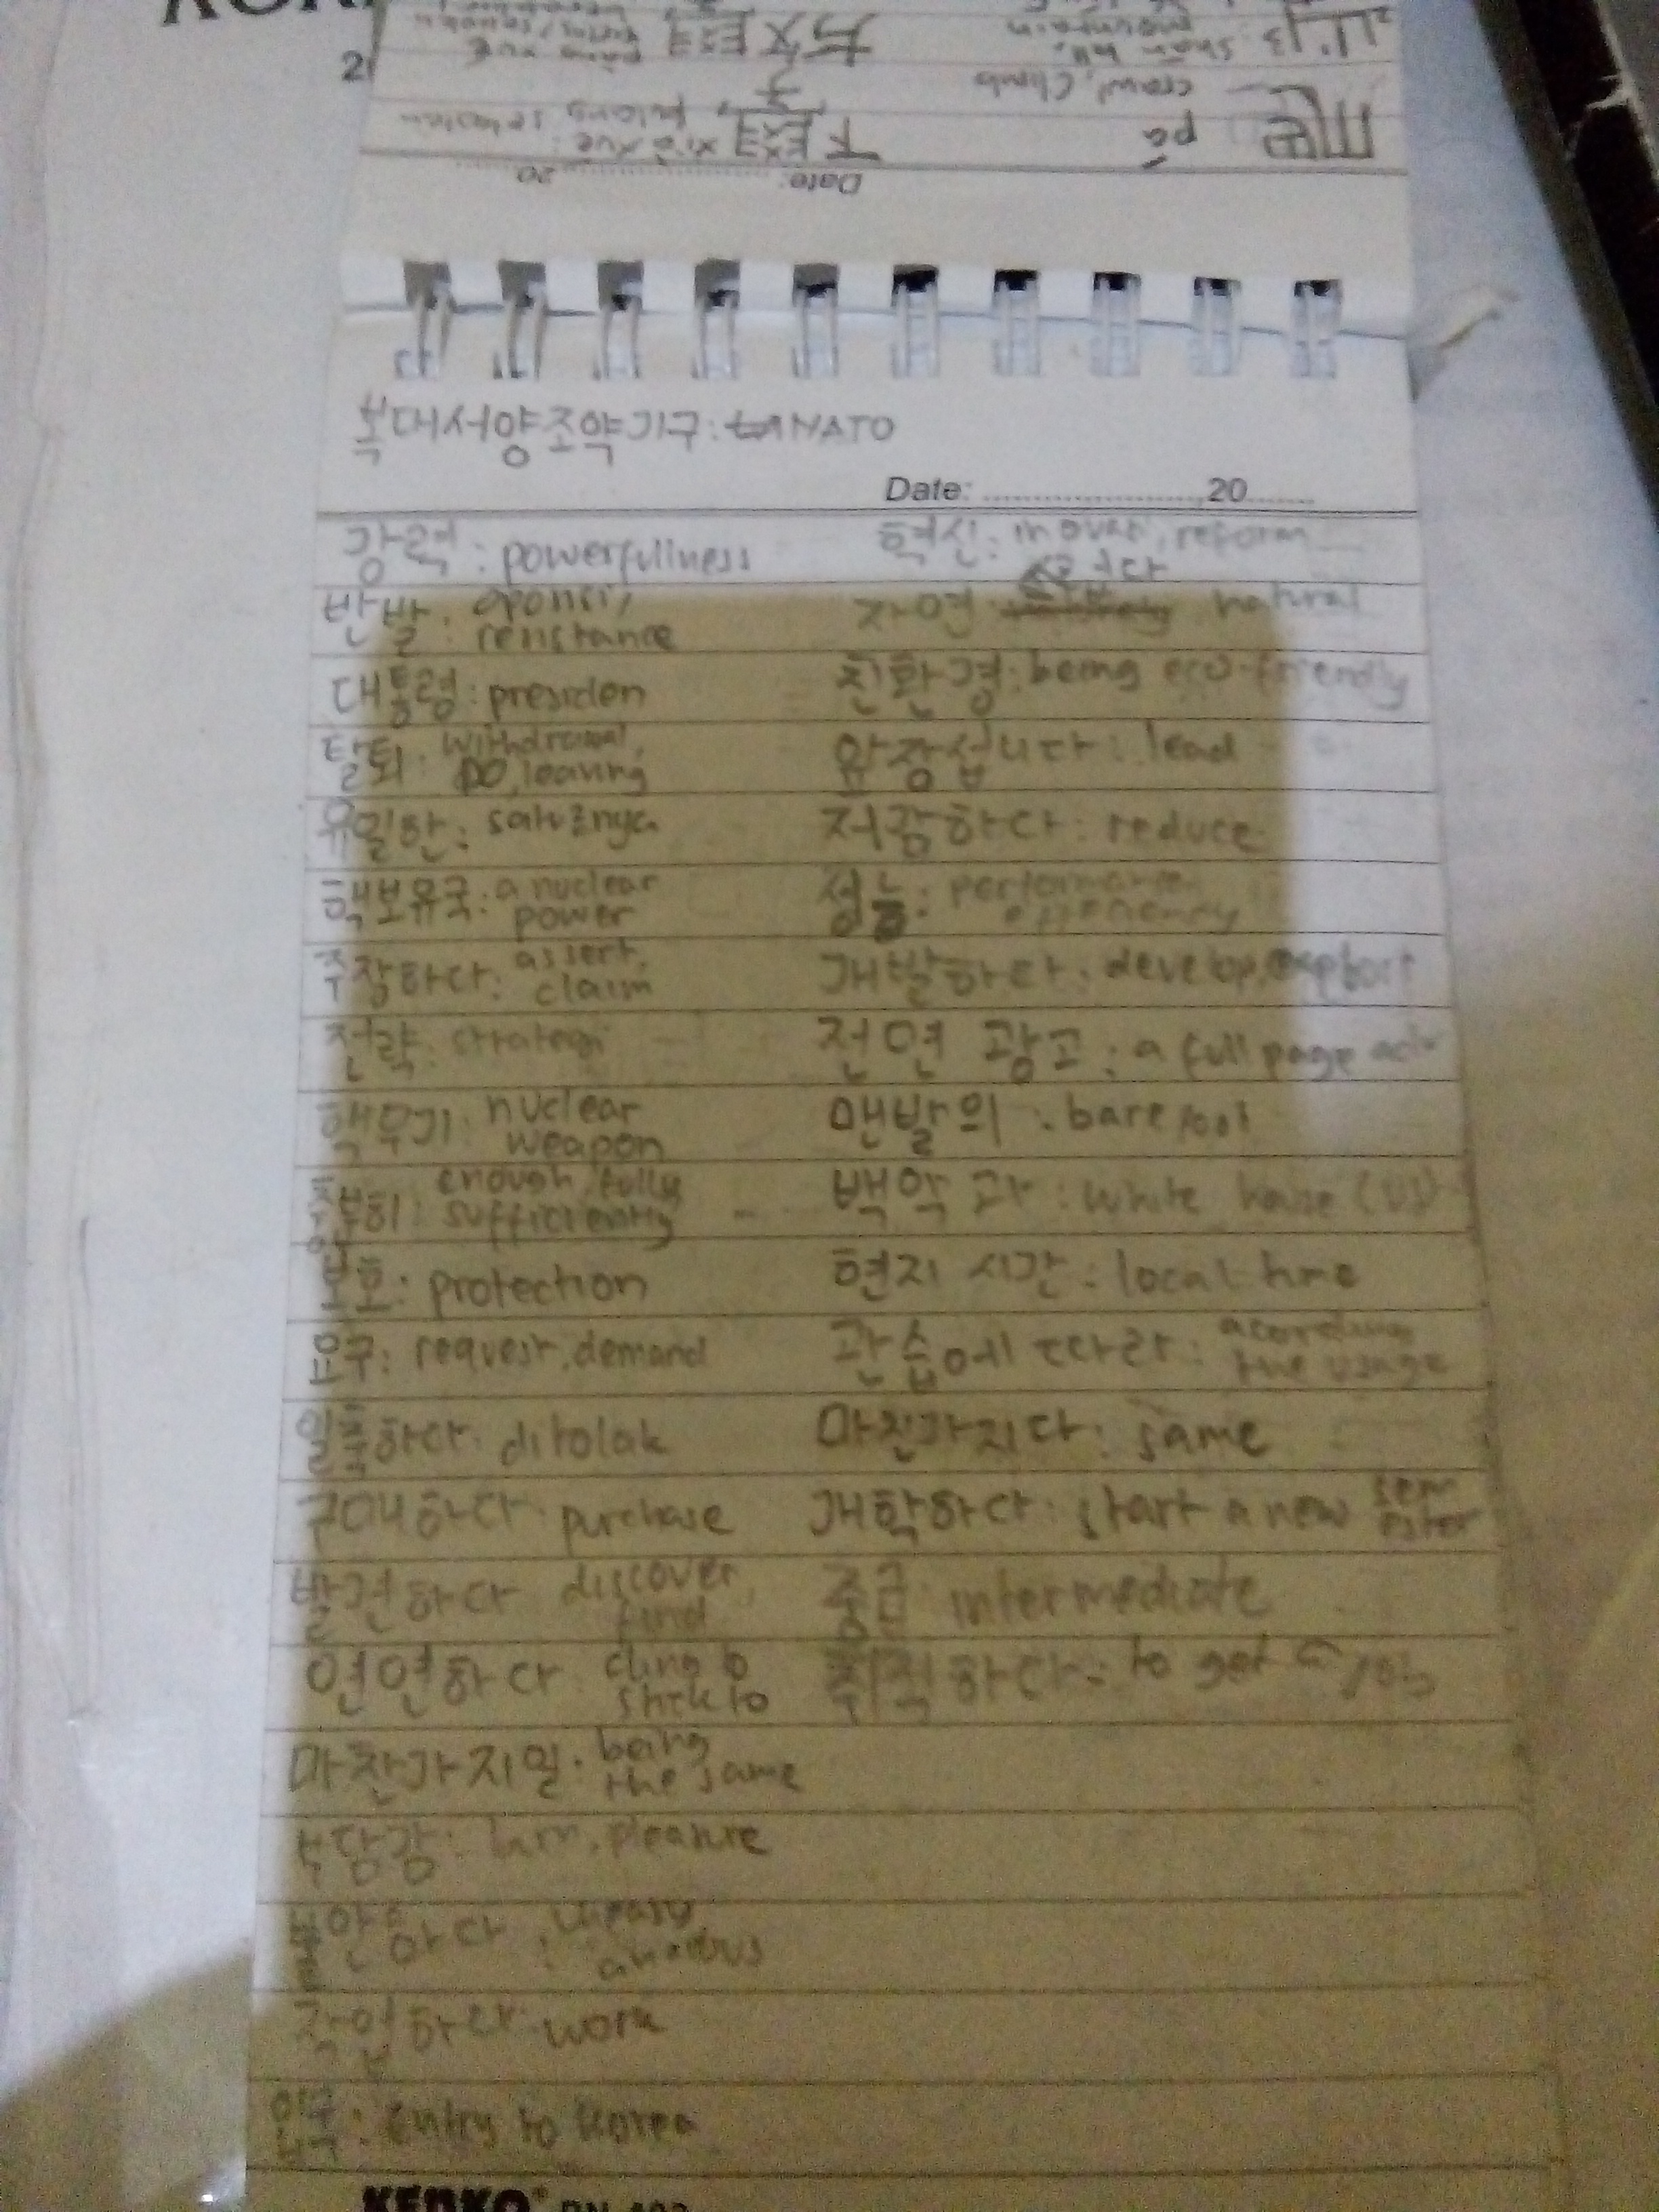 북대서양조약기구: NATO
Date: ............ 20......
강력: powerfullness
반발: oponsi, renistance
대통령: presiden
탈퇴: withdrawal, DO, leaving
유일한: satu2nya
핵보유국: a nuclear power
주장하다: assert, claim
전략: strategi
핵무기: nuclear weapon
충분히: enough, fully sufficiently
보호: protection
요구: request, demand
일축하다: ditolak
구매하다: purchase
발견하다 discover, find
연연하다: cling to stick to
마찬가지일: being the same
pleasure
불안하다:
작업하다: work
입국: Entry to Korea
혁신: reform
자연: natural
친환경: being eco-friendly
앞장섭니다: lead
저감하다: reduce
성능: performance, efficiency
개발하다: develop,
전면 광고: a full page adv
맨발의: barefoot
백악관: white house (US)
현지 시간: local time
관습에 따라: acording the usage
마찬가지다: same
개학하다: start a new semester
중급: intermediate
취직하다: to get a job
Date: ............ 20
下雪 xià xuě:
爬 pá
crawl, climb
山 shān
KENKO